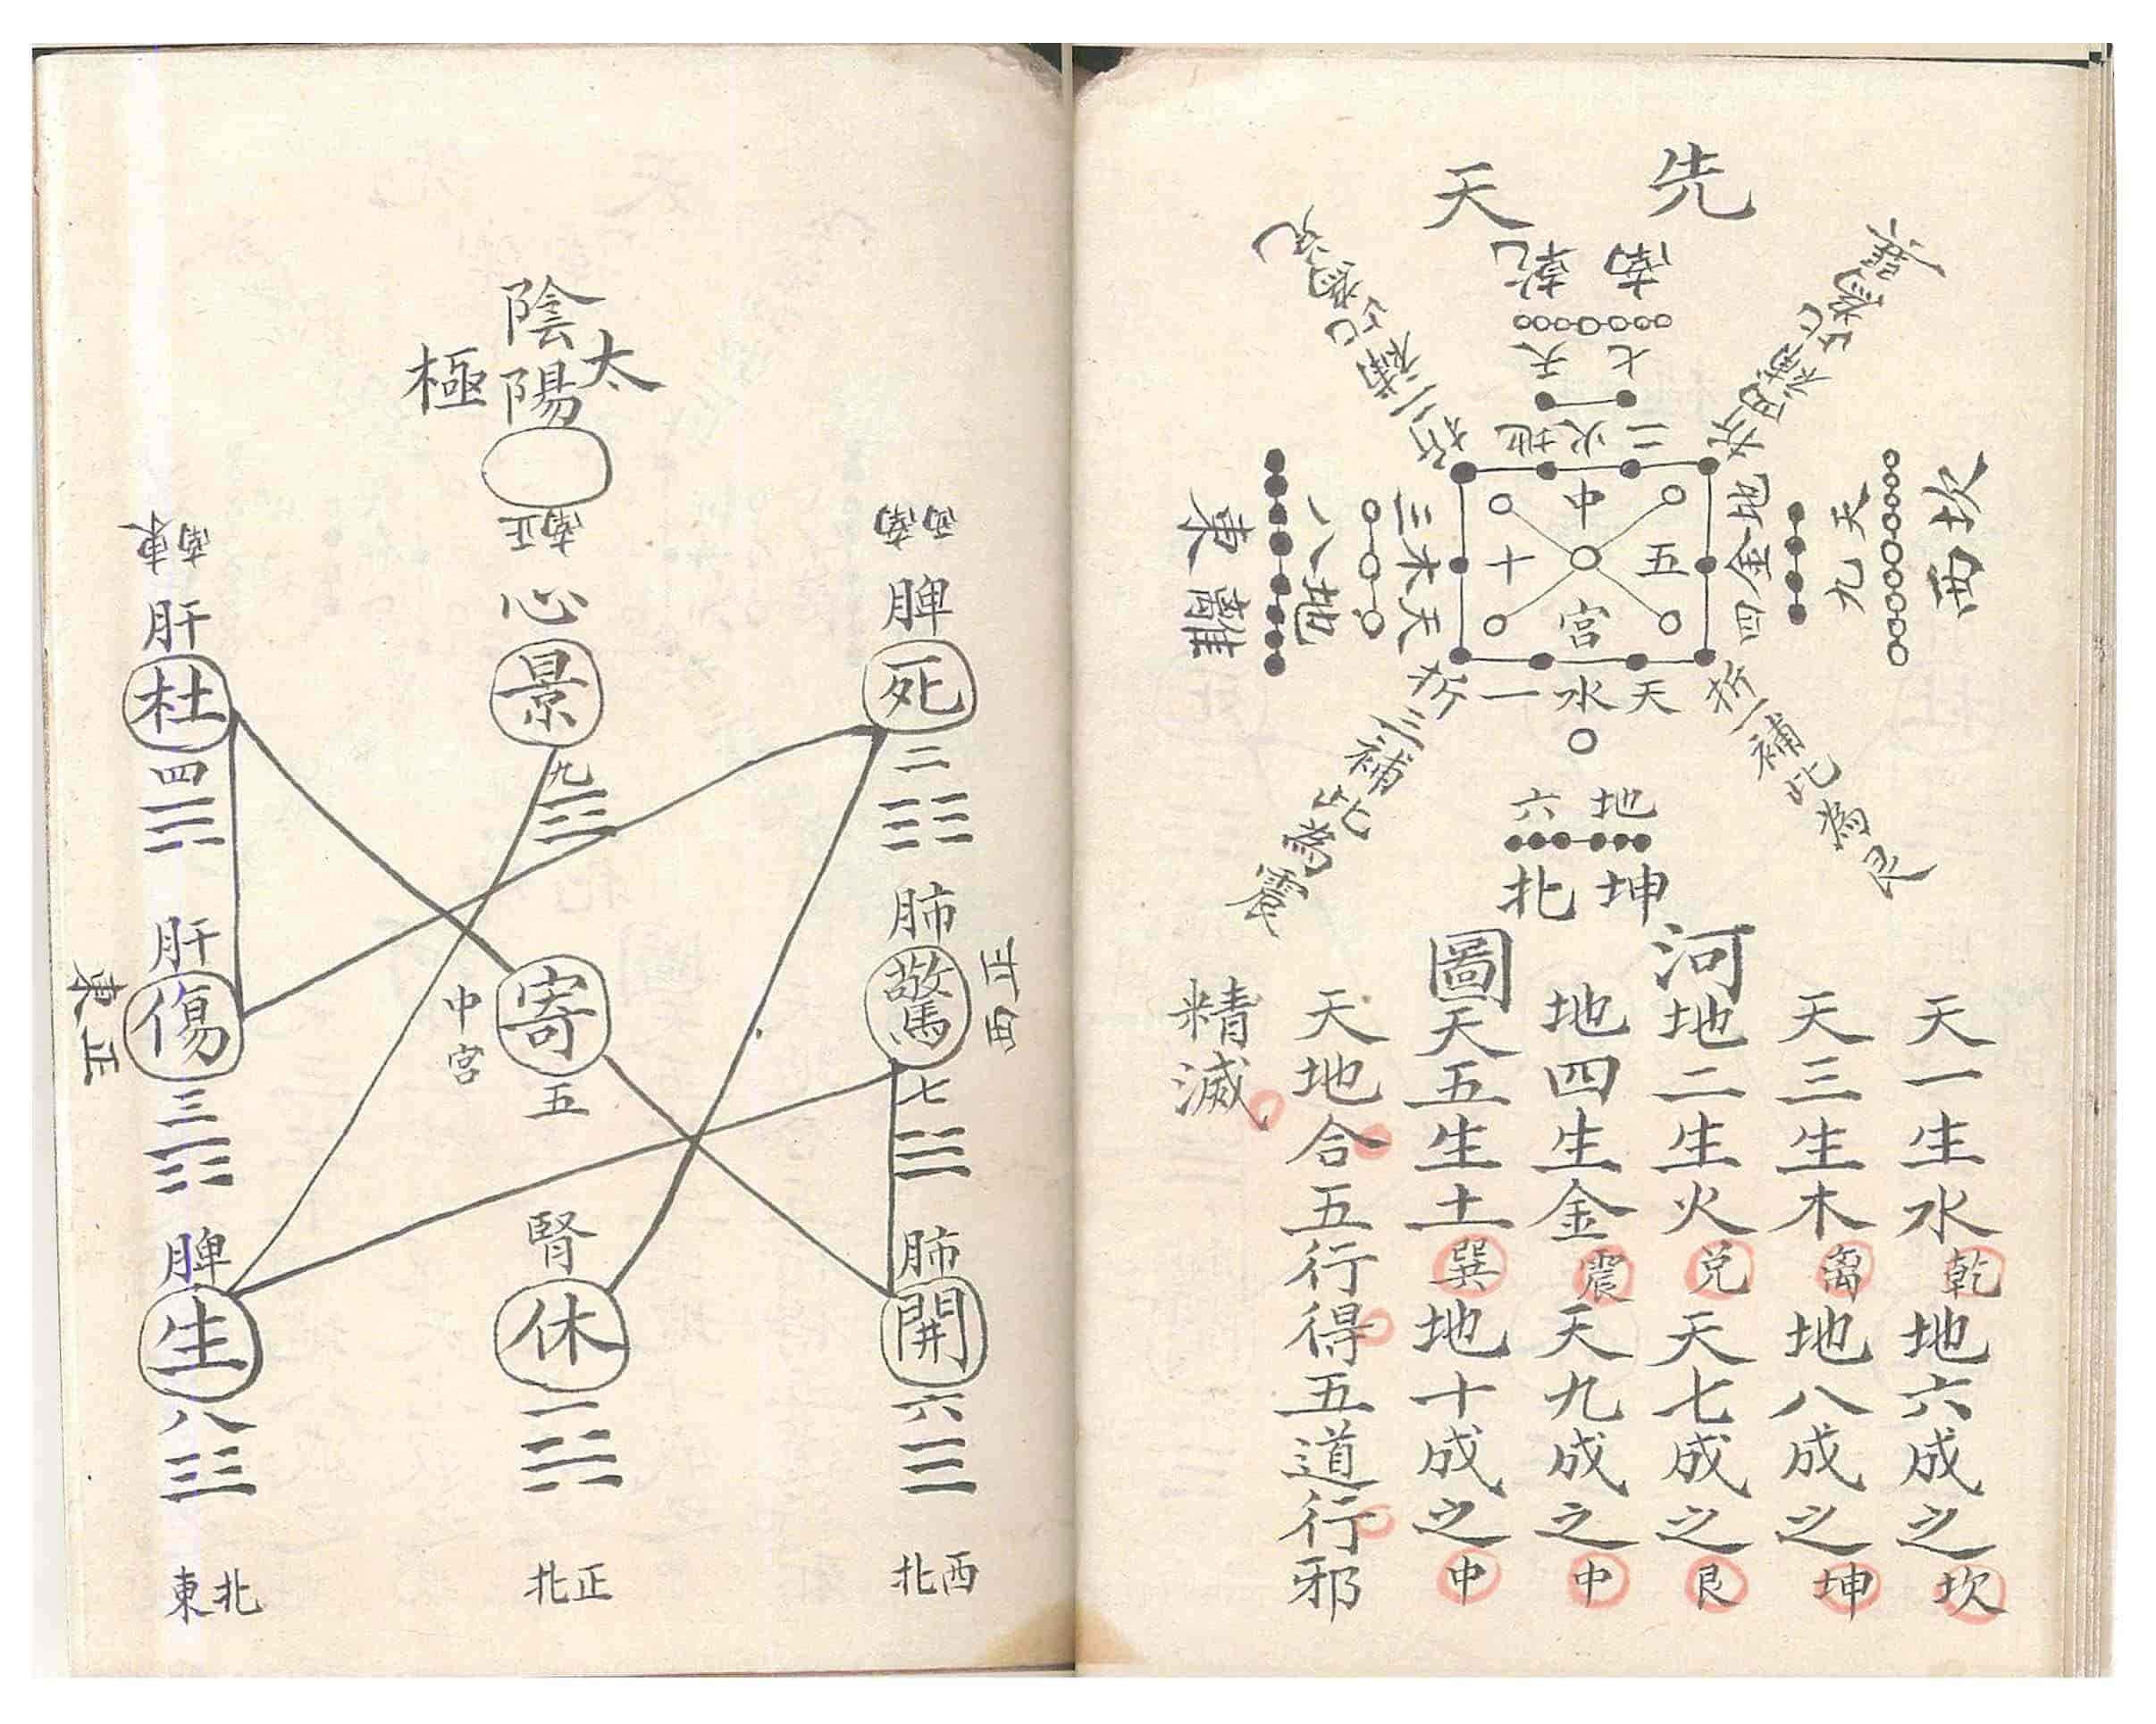 先天
南乾
七天
二火地
折四補此為
折二補七為兌
坎西
天九
地金四
中五十宮
三木天
八地
東離
天水一
折一補此為艮
折三補此為震
地六
坤北
河圖
天一生水乾地六成之坎
天三生木离地八成之坤
地二生火兌天七成之艮
地四生金震天九成之中
天五生土巽地十成之中
天地合五行得五道行邪
精滅
陰陽
太極
西南
脾
死
二
正南
心
景
九
東南
肝
杜
四
肺
驚
正西
七
寄
中宮
五
肝
傷
東正
三
肺
開
六
西北
腎
休
一
正北
脾
生
八
北東